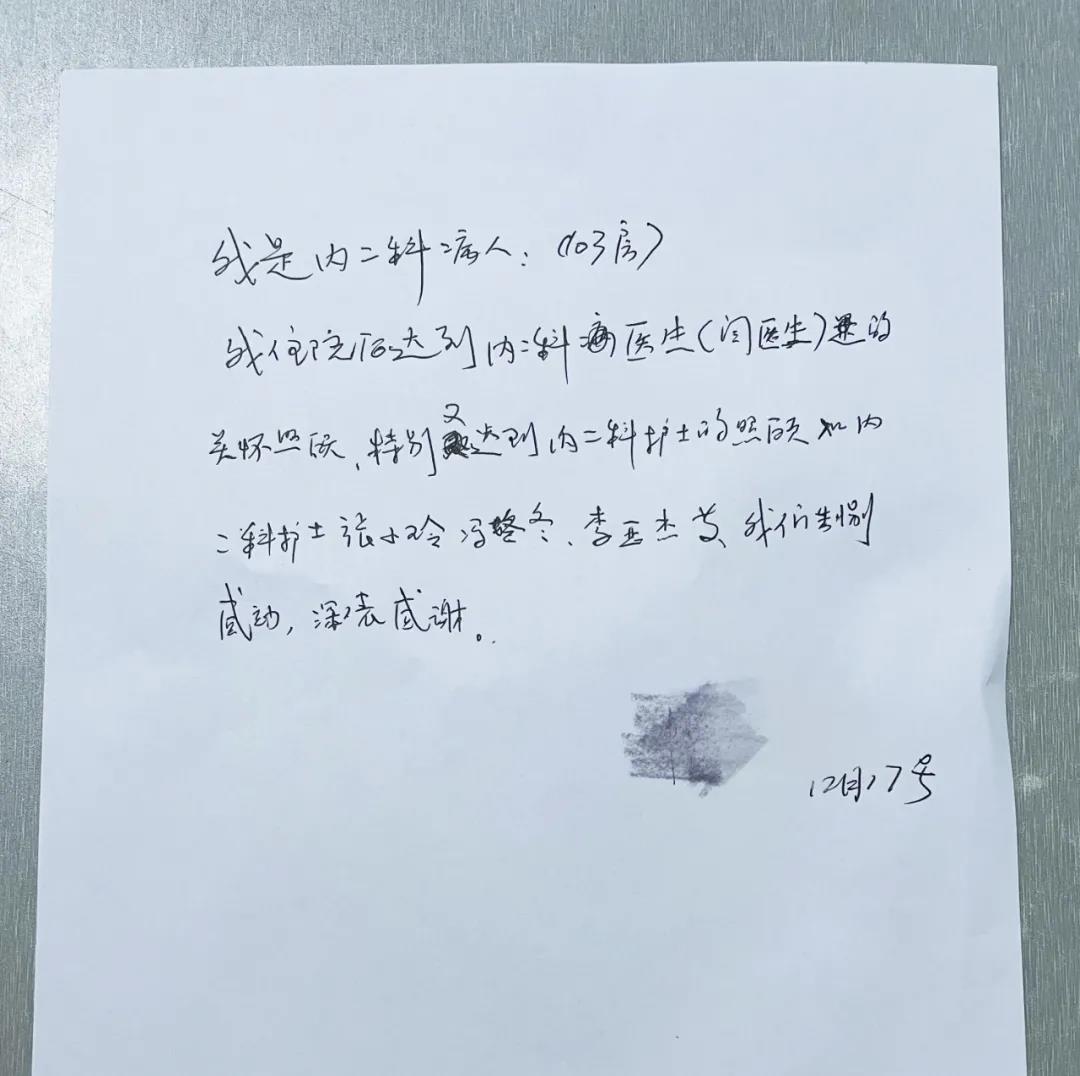 我是内二科病人：（103房）
我住院后达到内二科医生（闫医生）的
关怀照顾、特别又达到内二科护士的照顾和内
二科护士张小玲冯冬、李亚杰等、我们特别
感动，深表感谢。
12月17号